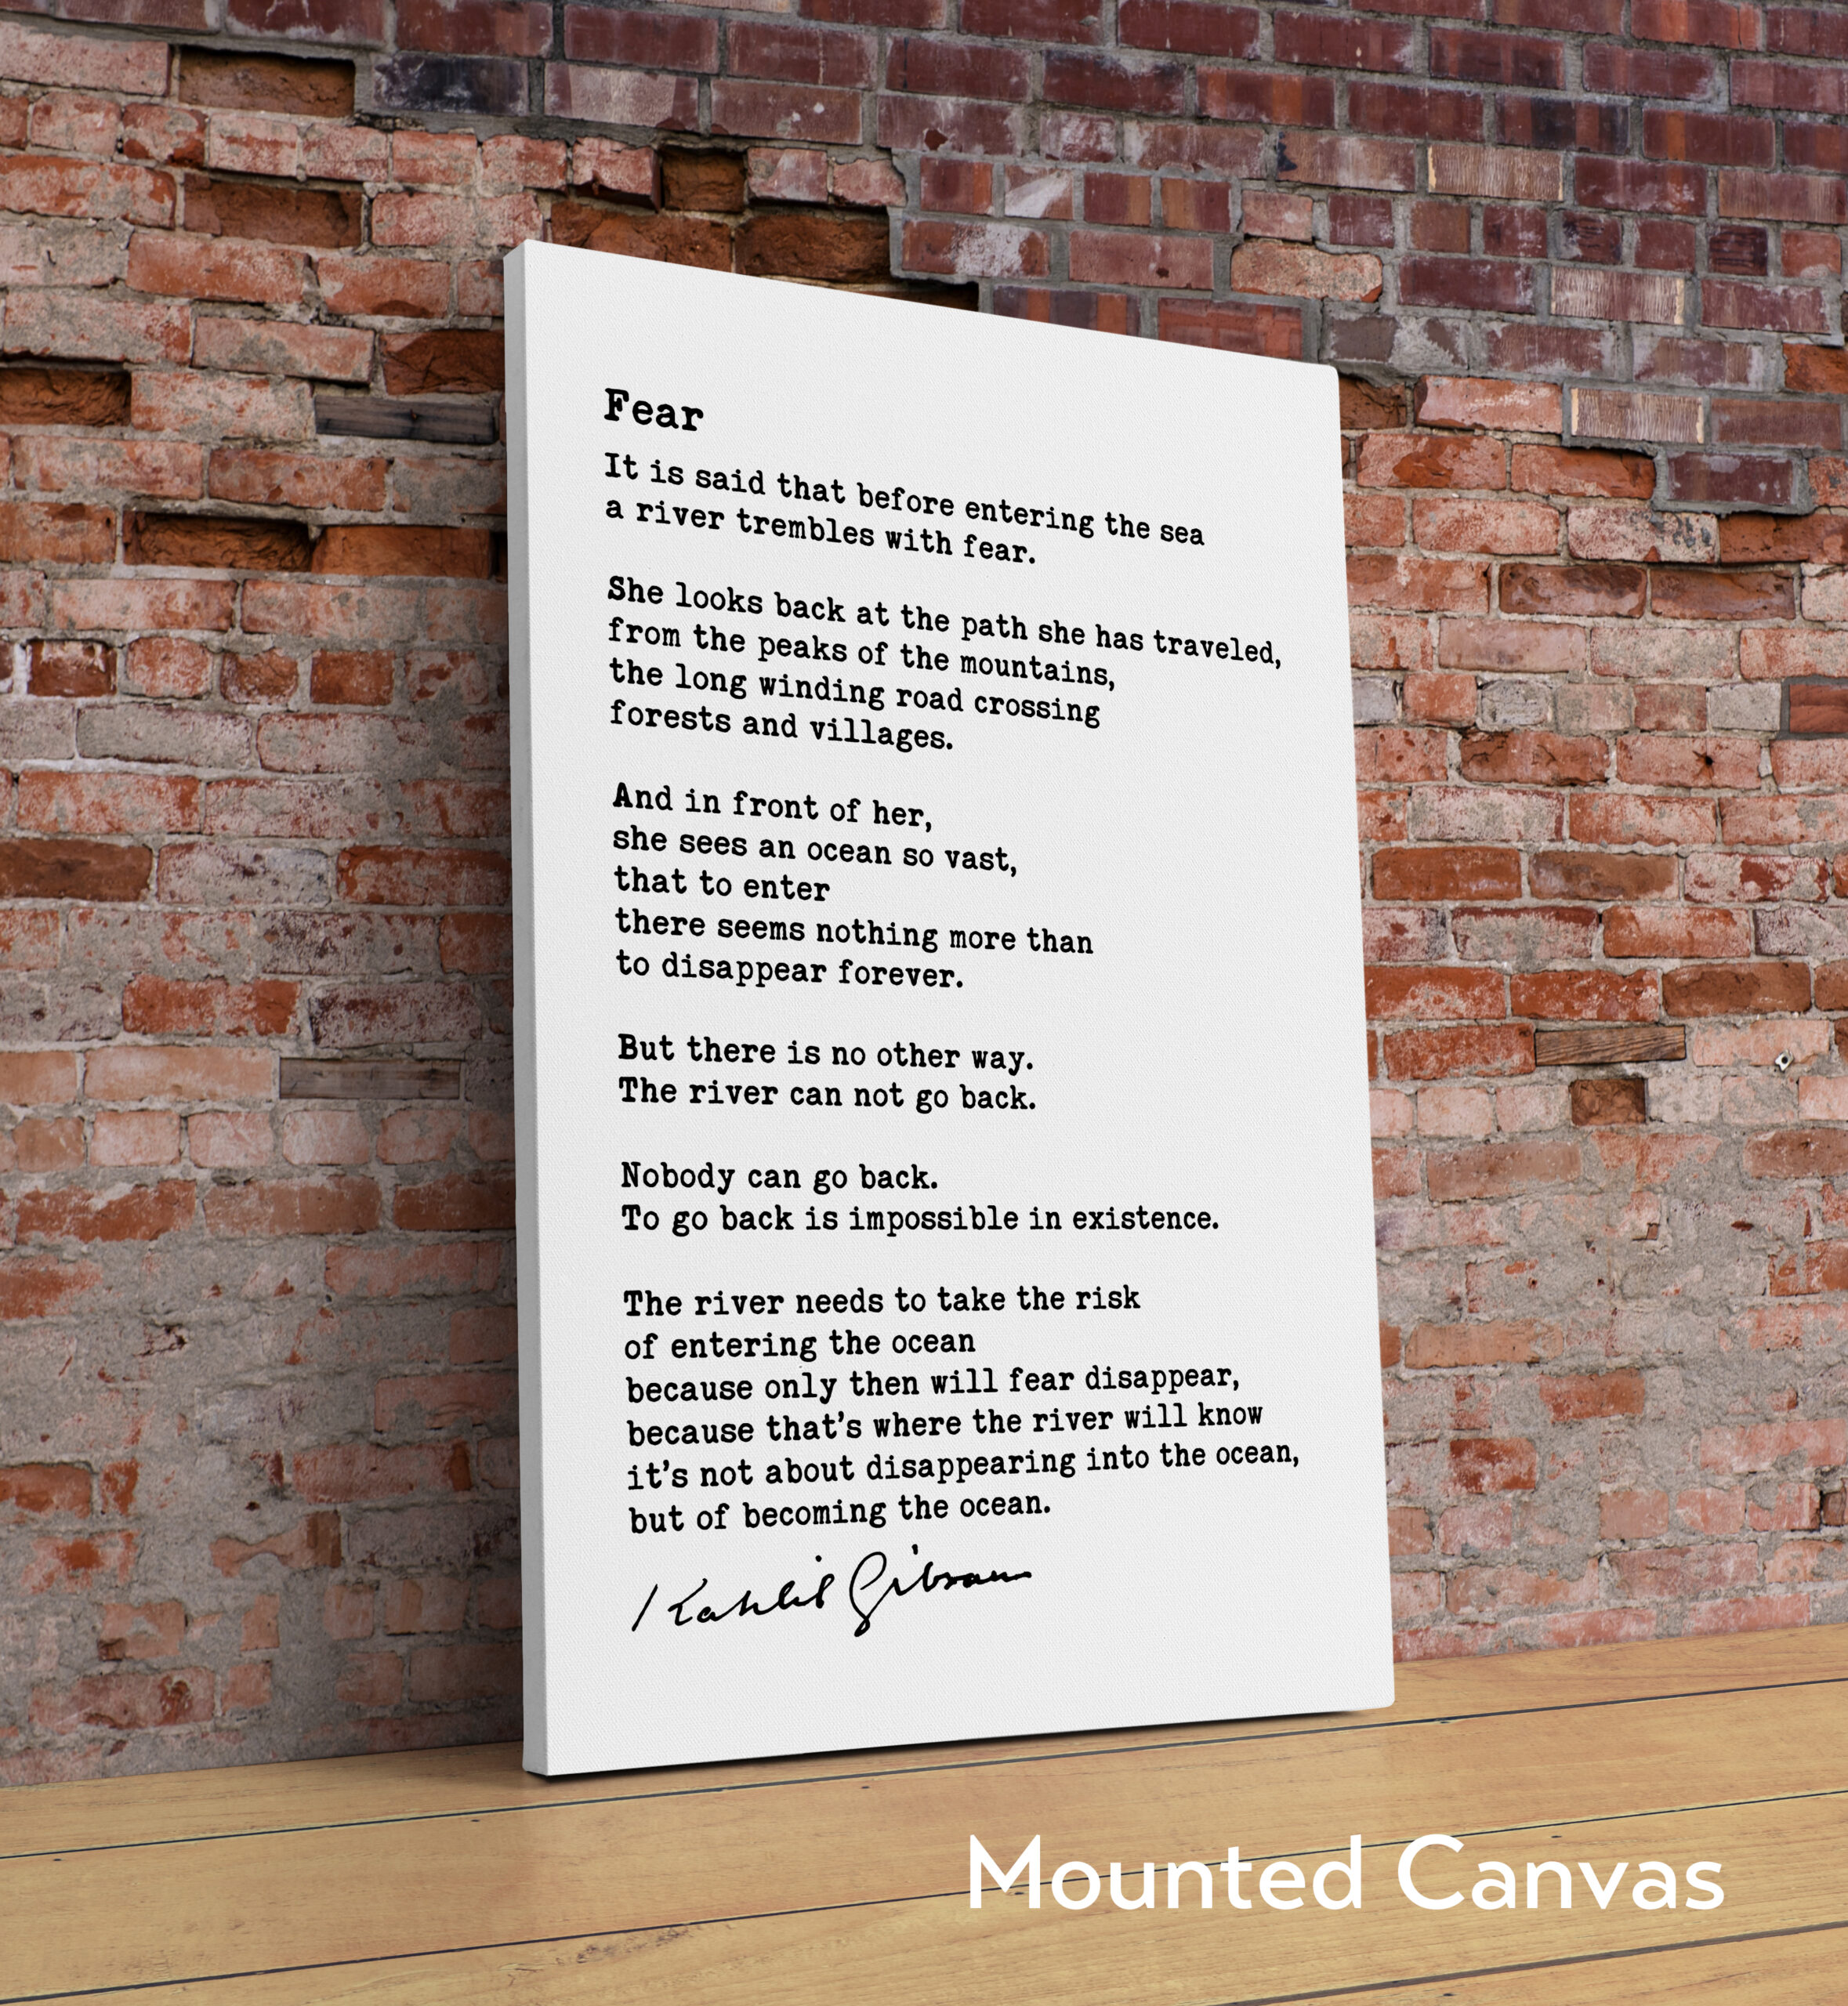 Fear
It is said that before entering the sea
a river trembles with fear.
She looks back at the path she has traveled,
from the peaks of the mountains,
the long winding road crossing
forests and villages.
And in front of her,
she sees an ocean so vast,
that to enter
there seems nothing more than
to disappear forever.
But there is no other way.
The river can not go back.
Nobody can go back.
To go back is impossible in existence.
The river needs to take the risk
of entering the ocean
because only then will fear disappear,
because that’s where the river will know
it’s not about disappearing into the ocean,
but of becoming the ocean.
Kahlil Gibran
Mounted Canvas